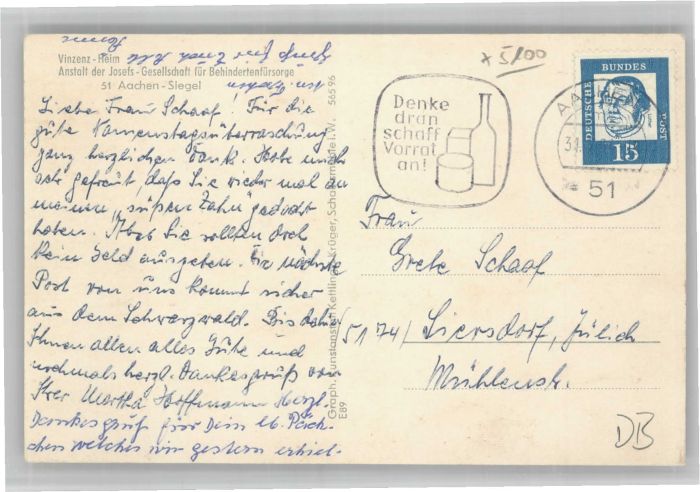 Vinzenz-Heim
Anstalt der Josefs-Gesellschaft für Behindertenfürsorge
51 Aachen-Siegel
Liebe Frau Schaaf! Für die
gute Namenstagsüberraschung
ganz herzlichen Dank. Habe mich
sehr gefreut, daß Sie wieder mal an
meinen "süßen Zahn" gedacht
haben. Aber Sie sollten doch
kein Geld ausgeben. Die nächste
Post von uns kommt sicher
aus dem Schwarzwald. Bis dahin
Ihnen allen alles Gute und
nochmals herzl. Dankesgruß von
Ihrer Martha Hoffmann Herzl.
Dankesgruß für Dein lb. Päck-
chen welches wir gestern erhiel-
ten.
565 96
Graph. Kunstanstalt Kettling Krüger, Schalksmühle i. W.
E89
x 5/00
Denke
dran
schaff
Vorrat
an!
AA
51
DEUTSCHE
BUNDES
POST
15
Frau
Grete Schaaf
5174/ Siersdorf, Jülich
Mühlenstr.
DB